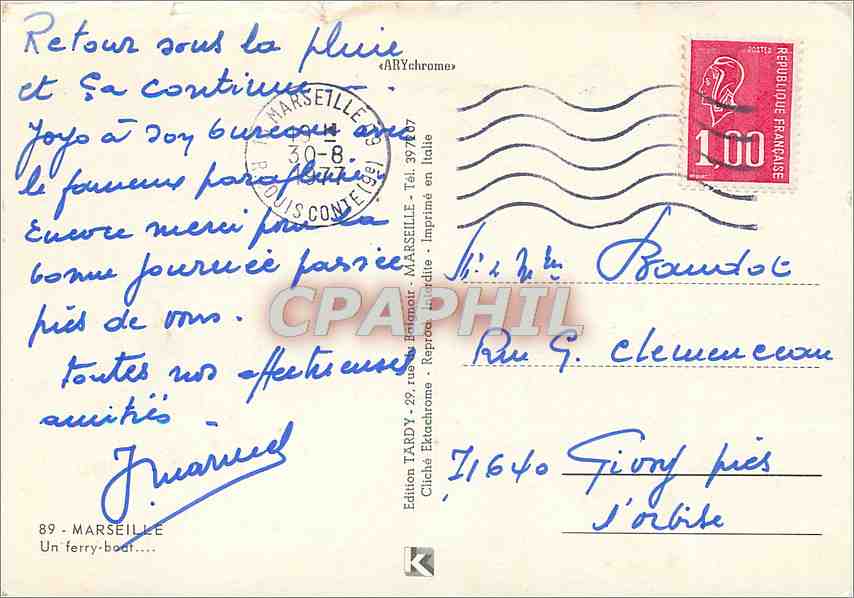 Retour sous la pluie
et ça continue -
Jojo à son bureau avec
le fameux parapluie.
Encore merci pour la
bonne journée passée
près de vous.
Toutes nos affectueuses
amitiés
89 - MARSEILLE
Un ferry-boat....
«ARYchrome»
Edition TARDY - 29, rue du Baignoir - MARSEILLE - Tél. 397207
Cliché Ektachrome - Reprod. Interdite - Imprimé en Italie
K
MARSEILLE 09
30-8
1977
R. LOUIS CONTE (9e)
POSTES
REPUBLIQUE FRANÇAISE
1.00
Baudot
Rue G. Clemenceau
71640 Givry près
l'orbise
CPAPHIL